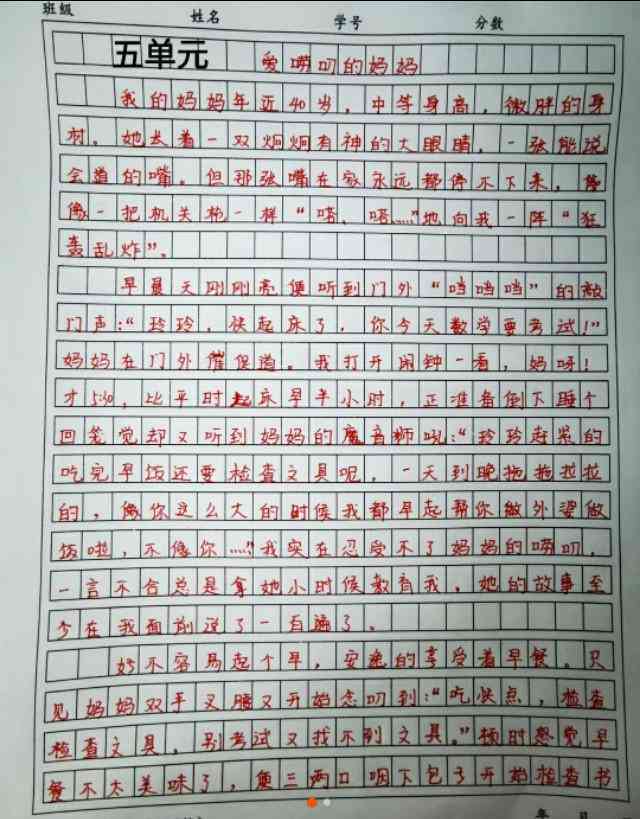 班级
姓名 学号 分数
五单元 爱唠叨的妈妈
我的妈妈年近40岁，中等身高，微胖的身
材。她长着一双炯炯有神的大眼睛，一张能说
会道的嘴。但那张嘴在家永远都停不下来，就
像一把机关枪一样“嗒、嗒……”地向我一阵“狂
轰乱炸”。
早晨天刚刚亮便听到门外“咣咣咣”的敲
门声：“玲玲，快起床了，你今天数学要考试！”
妈妈在门外催促道。我打开闹钟一看，妈呀！
才5:30，比平时起床早半小时，正准备倒下睡个
回笼觉却又听到妈妈的魔音狮吼：“玲玲赶紧的
吃完早饭还要检查文具呢，一天到晚拖拖拉拉
的，像你这么大的时候我都早起帮你做外婆做
饭啦，不像你……”我实在忍受不了妈妈的唠叨，
一言不合总是拿她小时候教育我，她的故事至
今在我面前说了一百遍了。
好不容易起个早，安逸的享受着早餐。只
见妈妈双手叉腰又开始念叨到：“吃快点，检查
检查文具，别考试又找不到文具。”顿时感觉早
餐不太美味了，便三两口咽下包子开始检查书
年 月